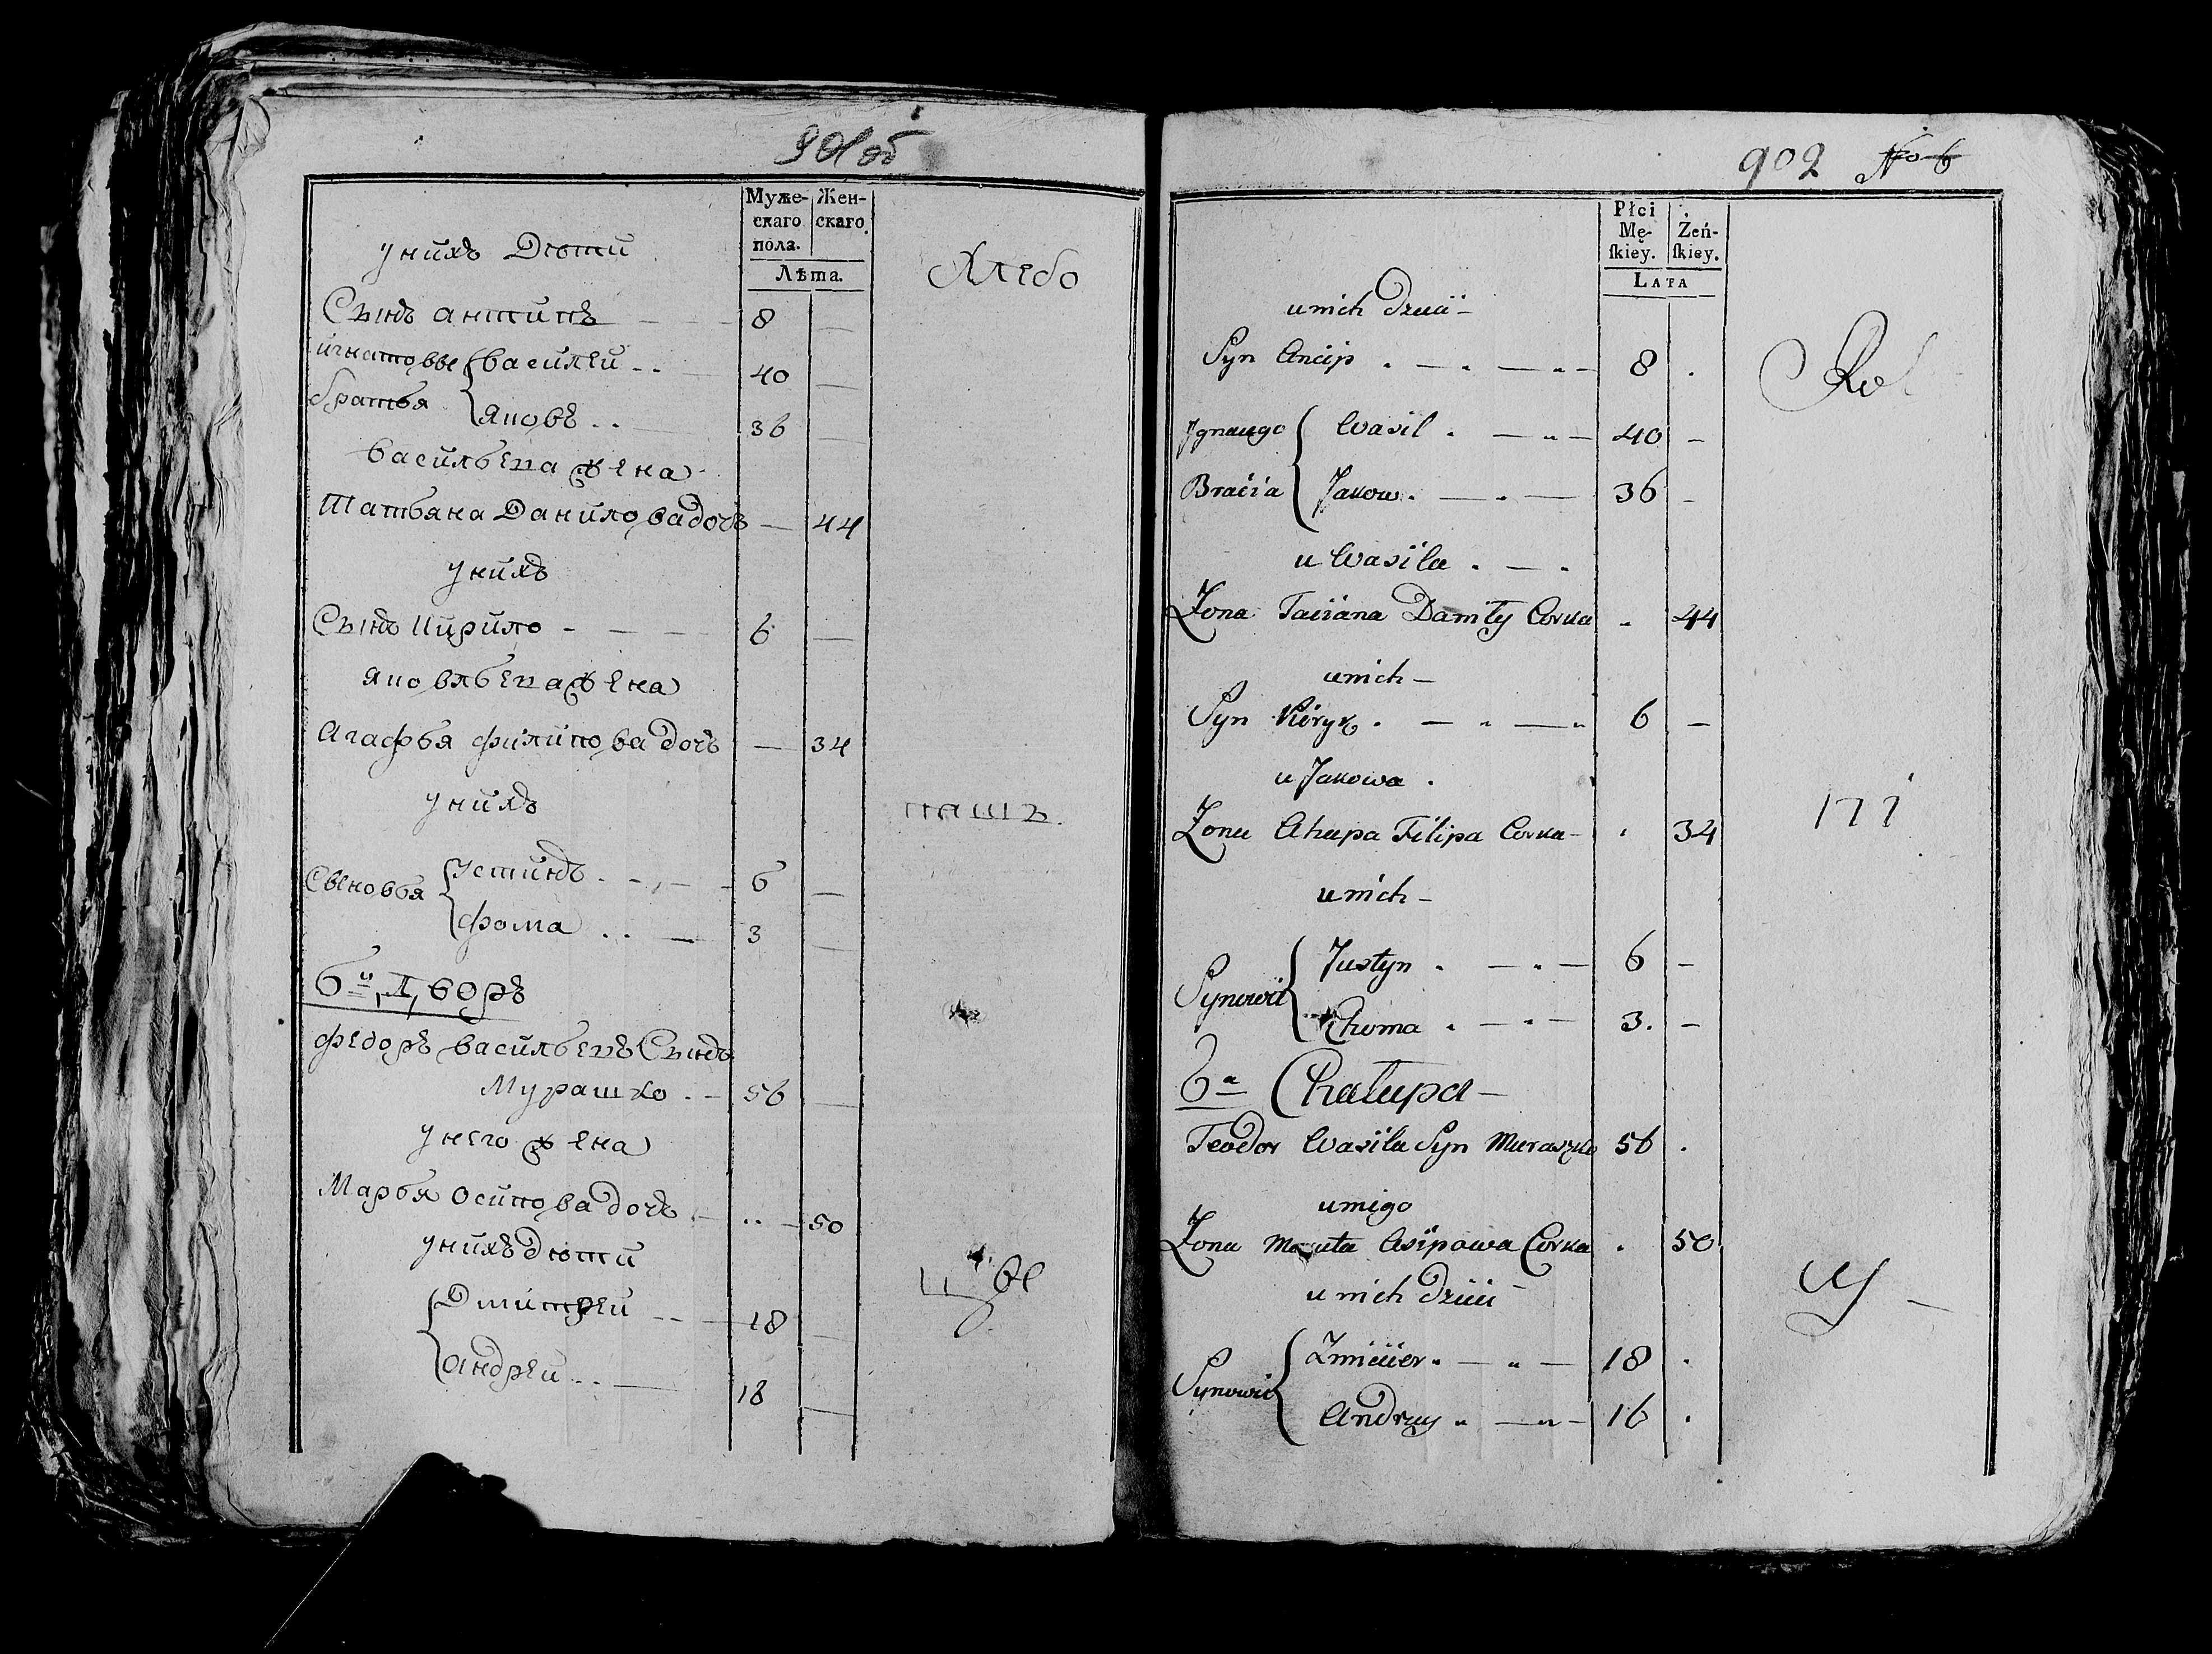 901об
Муже-
скаго
пола.
Жен-
скаго.
Лѣта.
у нихъ Дѣти
Хлебо
Сынъ антипъ 8
игнатовы братья { василей 40
яковъ 36
васильева жена
Татьяна Данилова дочь 44
у нихъ
Сынъ Кирило 6
яковлева жена
Агафья филипова дочь 34
у нихъ
пашъ
Сыновья { Устинъ 6
фома 3
6й Дворъ
федоръ васильевъ Сынъ
Мурашко 56
у него жена
Марья осипова дочь 50
у нихъ дѣти
{ Дмитрей 18
андрей 18
902 No 6
Płci
Mę-
ſkiey.
Żeń-
ſkiey.
LATA
u nich Dzieci
Rol
Syn Ancip 8
Jgnacego Bracia { Wasil 40
Jakow 36
u Wasila
Zona Taciana Daniły Corka 44
u nich
Syn Kiryk 6
u Jakowa
Zona Ahapa Filipa Corka 34
u nich
Synowie { Justyn 6
Choma 3
6a Chałupa
Teodor Wasila Syn Muraszko 56
u niego
Zona Asipowa Corka 50
u nich Dzieci
Synowie { Zmicier 18
Andrzey 16